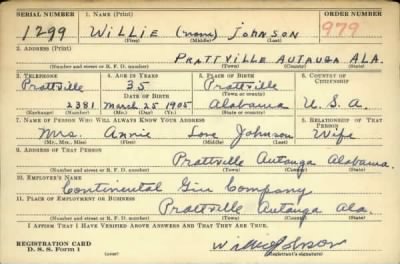 SERIAL NUMBER 1. NAME (Print) ORDER NUMBER
1299 WILLIE (none) JOHNSON 979
(First) (Middle) (Last)
2. ADDRESS (Print)
PRATTVILLE AUTAUGA ALA.
(Number and street or R. F. D. number) (Town) (County) (State)
3. TELEPHONE 4. AGE IN YEARS 5. PLACE OF BIRTH 6. COUNTRY OF CITIZENSHIP
Prattville 35 Prattville
DATE OF BIRTH (Town or county)
2381 March 25 1905 Alabama U.S.A.
(Exchange) (Number) (Mo.) (Day) (Yr.) (State or country)
7. NAME OF PERSON WHO WILL ALWAYS KNOW YOUR ADDRESS 8. RELATIONSHIP OF THAT PERSON
Mrs. Annie Love Johnson Wife
(Mr., Mrs., Miss) (First) (Middle) (Last)
9. ADDRESS OF THAT PERSON
Prattville Autauga Alabama.
(Number and street or R. F. D. number) (Town) (County) (State)
10. EMPLOYER'S NAME
Continental Gin Company
11. PLACE OF EMPLOYMENT OR BUSINESS
Prattville Autauga Ala.
(Number and street or R. F. D. number) (Town) (County) (State)
I AFFIRM THAT I HAVE VERIFIED ABOVE ANSWERS AND THAT THEY ARE TRUE.
REGISTRATION CARD
D. S. S. Form 1 Willie Johnson
(over) (Registrant's signature)